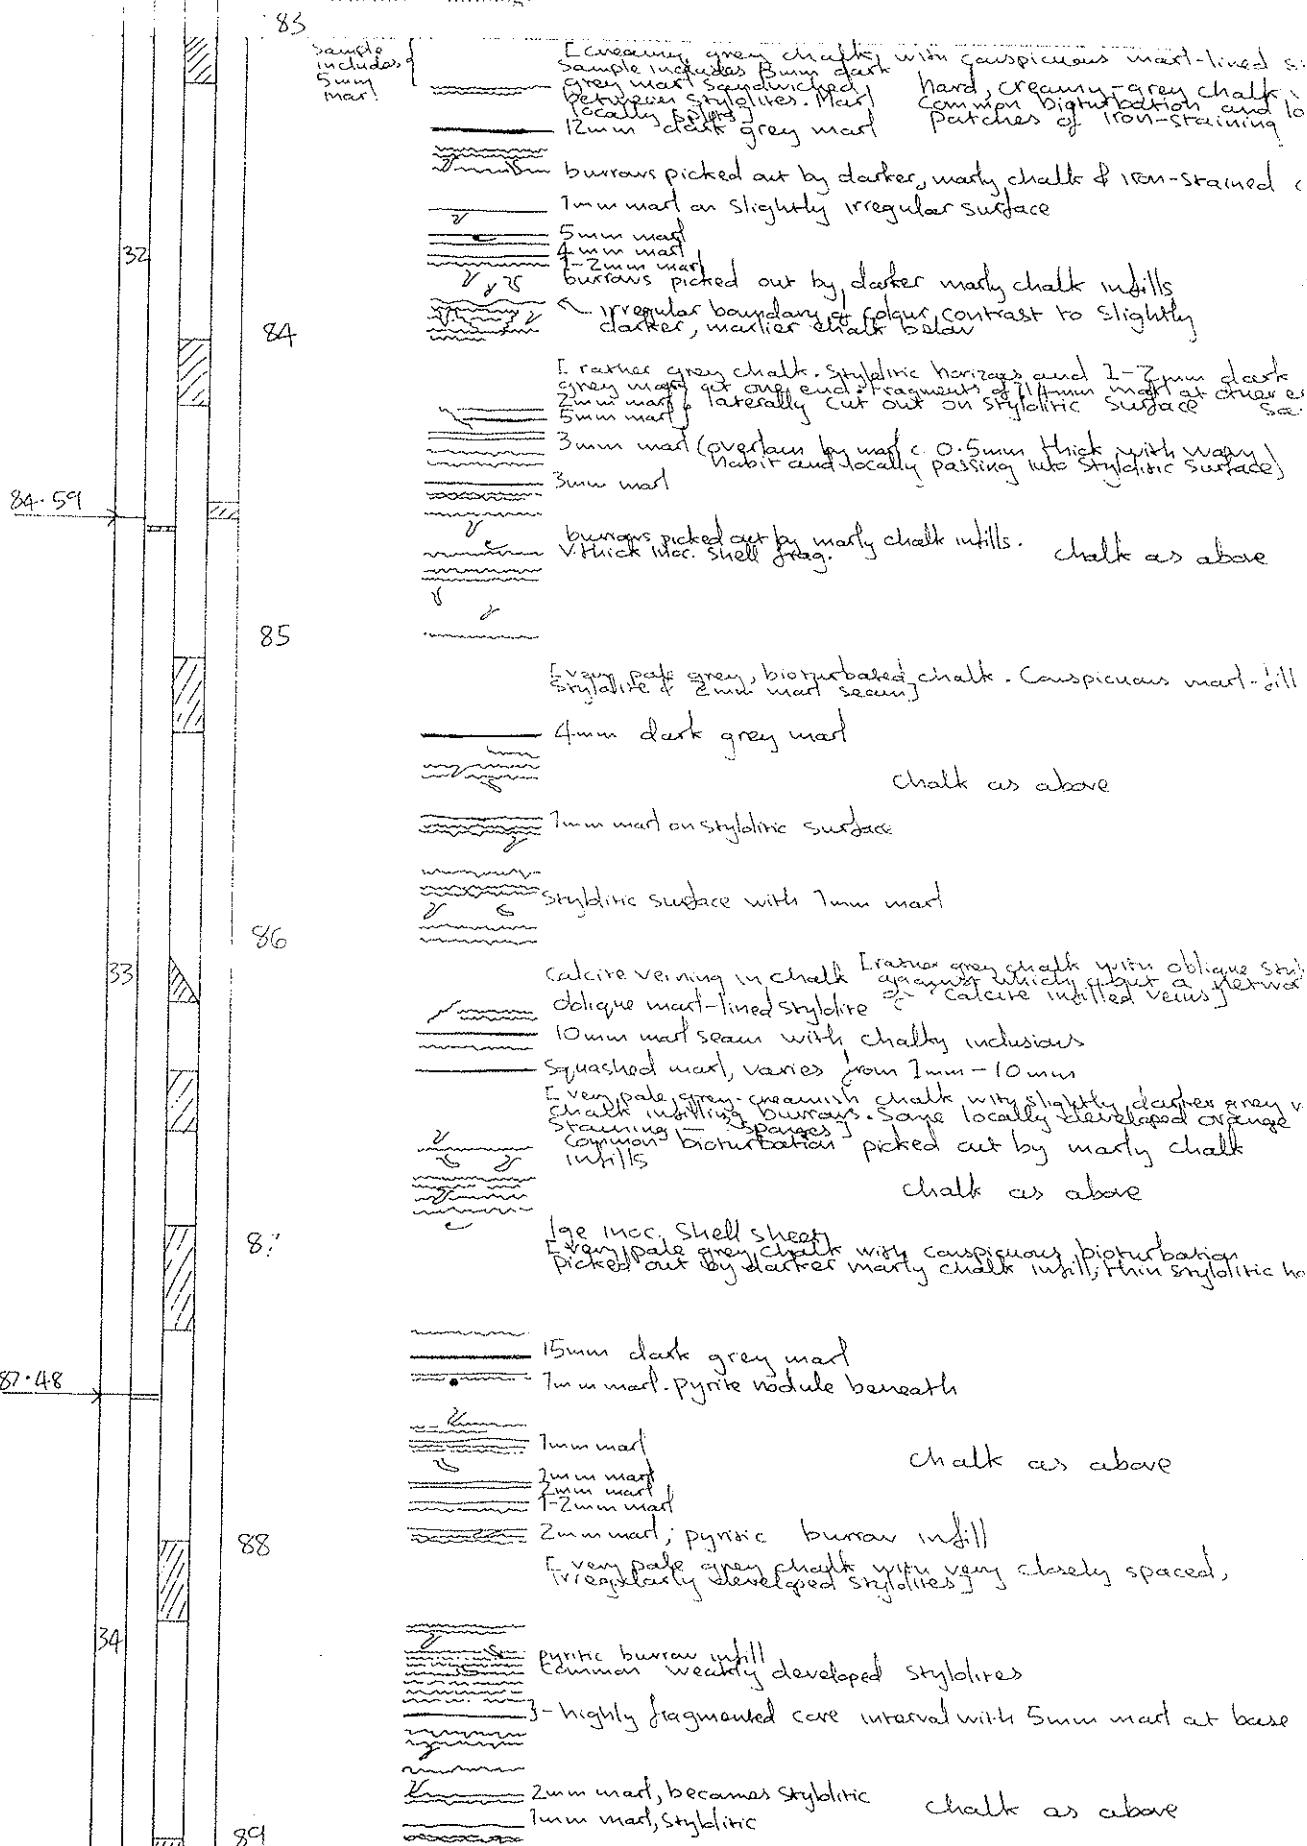 83
Sample
includes
5mm
marl
[creamy grey chalk, with conspicuous marl-lined
Sample includes 5mm dark
grey marl sandwiched
between stylolites. Marl
locally
hard, creamy-grey chalk.
Common bioturbation and
patches of iron-staining
12mm dark grey marl
burrows picked out by darker, marly chalk & iron-stained
1mm marl on slightly irregular surface
5mm marl
4mm marl
1-2mm marl
32
burrows picked out by darker marly chalk infills
irregular boundary of colour contrast to slightly
darker, marlier chalk below
84
[rather grey chalk. Stylolitic horizons and 1-2mm dark
grey marl at one end; fragments of 14mm marl at other
2mm marl } laterally cut out on stylolitic surface
5mm marl }
3mm marl (overlain by marl c. 0.5mm thick with wavy
habit and locally passing into stylolitic surface)
3mm marl
84.59
burrows picked out by marly chalk infills.
V. thick inoc. shell frag.
chalk as above
85
[very pale grey, bioturbated chalk. Conspicuous marl-fill
stylolite & 2mm marl seam]
4mm dark grey marl
chalk as above
1mm marl on stylolitic surface
stylolitic surface with 1mm marl
86
33
calcite veining in chalk
[rather grey chalk with oblique
against which abut a
calcite infilled veins]
oblique marl-lined stylolite
10mm marl seam with chalky inclusions
squashed marl, varies from 1mm-10mm
[very pale grey-creamish chalk with slightly darker grey
chalk infilling burrows. Some locally developed orange
staining - ?sponges]
Common bioturbation picked out by marly chalk
infills
chalk as above
lge inoc. shell sheet
[very pale grey chalk with conspicuous bioturbation
picked out by darker marly chalk infill; thin stylolitic
15mm dark grey marl
87.48
1mm marl. pyrite nodule beneath
1mm marl
chalk as above
2mm marl
2mm marl
1-2mm marl
88
2mm marl; pyritic burrow infill
[very pale grey chalk with very closely spaced,
irregularly developed stylolites]
34
pyritic burrow infill
Common weakly developed stylolites
}-highly fragmented core interval with 5mm marl at base
2mm marl, becomes stylolitic
chalk as above
1mm marl, stylolitic
89